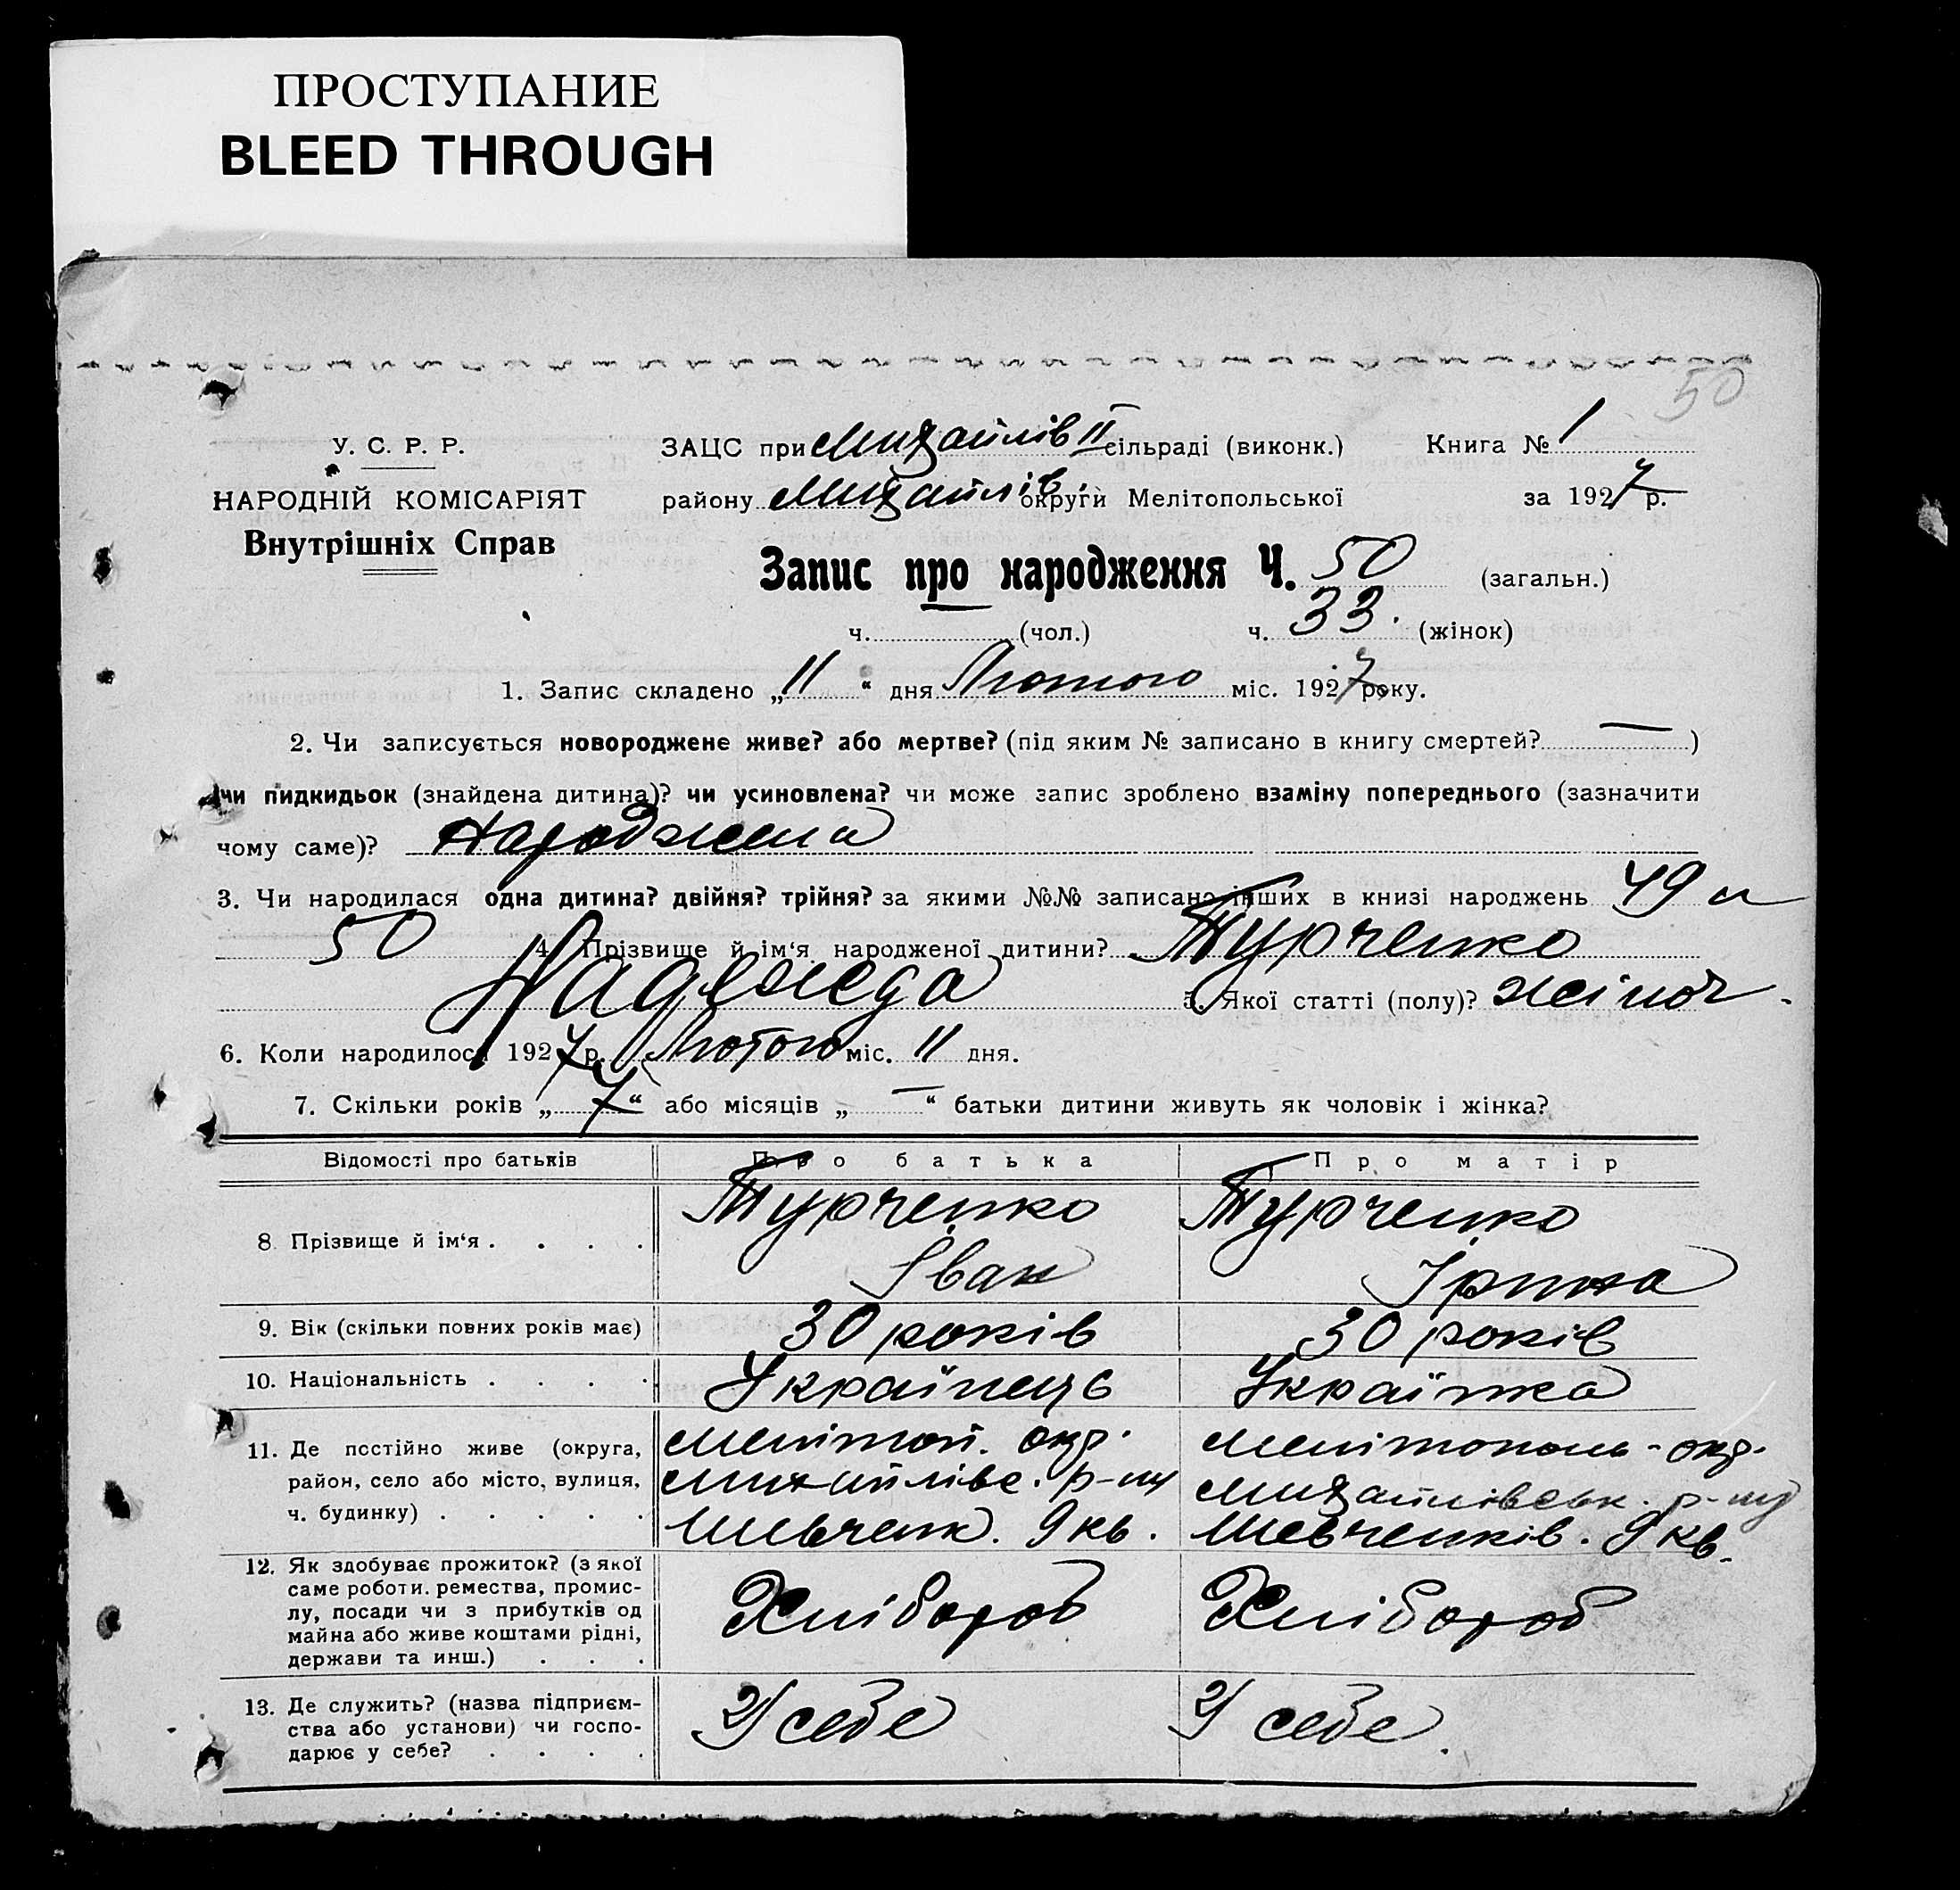 ПРОСТУПАНИЕ
BLEED THROUGH
50
У. С. Р. Р.
НАРОДНІЙ КОМІСАРІЯТ
Внутрішніх Справ
ЗАЦС при Михайлів II сільраді (виконк.) Книга № 1
району Михайлів. округи Мелітопольської за 1927 р.
Запис про народження Ч. 50 (загальн.)
ч. (чол.) ч. 33. (жінок)
1. Запис складено „11“ дня Лютого міс. 1927 року.
2. Чи записується новороджене живе? або мертве? (під яким № записано в книгу смертей? — )
чи підкидьок (знайдена дитина)? чи усиновлена? чи може запис зроблено взаміну попереднього (зазначити
чому саме)? Народжена
3. Чи народилася одна дитина? двійня? трійня? за якими №№ записано інших в книзі народжень 49 и
50 4. Прізвище й ім‘я народженої дитини? Турченко
Надежда 5. Якої статті (полу)? жіноч.
6. Коли народилося 1927 р. Лютого міс. 11 дня.
7. Скільки років „7“ або місяців „—“ батьки дитини живуть як чоловік і жінка?
Відомості про батьків Про батька Про матір
8. Прізвище й ім‘я . . . . Турченко Іван Турченко Ірина
9. Вік (скільки повних років має) 30 років 30 років
10. Національність . . . . Українець Українка
11. Де постійно живе (округа, Мелітоп. окр. Мелітополь-окр.
район, село або місто, вулиця, Михайлівс. р-ну Михайлівськ. р-ну
ч. будинку) . . . . . Шевченк. 9 кв. Шевченків. 9 кв.
12. Як здобуває прожиток? (з якої
саме роботи. ремества, промис-
лу, посади чи з прибутків од Хлібороб Хлібороб
майна або живе коштами рідні,
держави та инш.) . . .
13. Де служить? (назва підприєм-
ства або установи) чи госпо- У себе У себе.
дарює у себе? . . . .